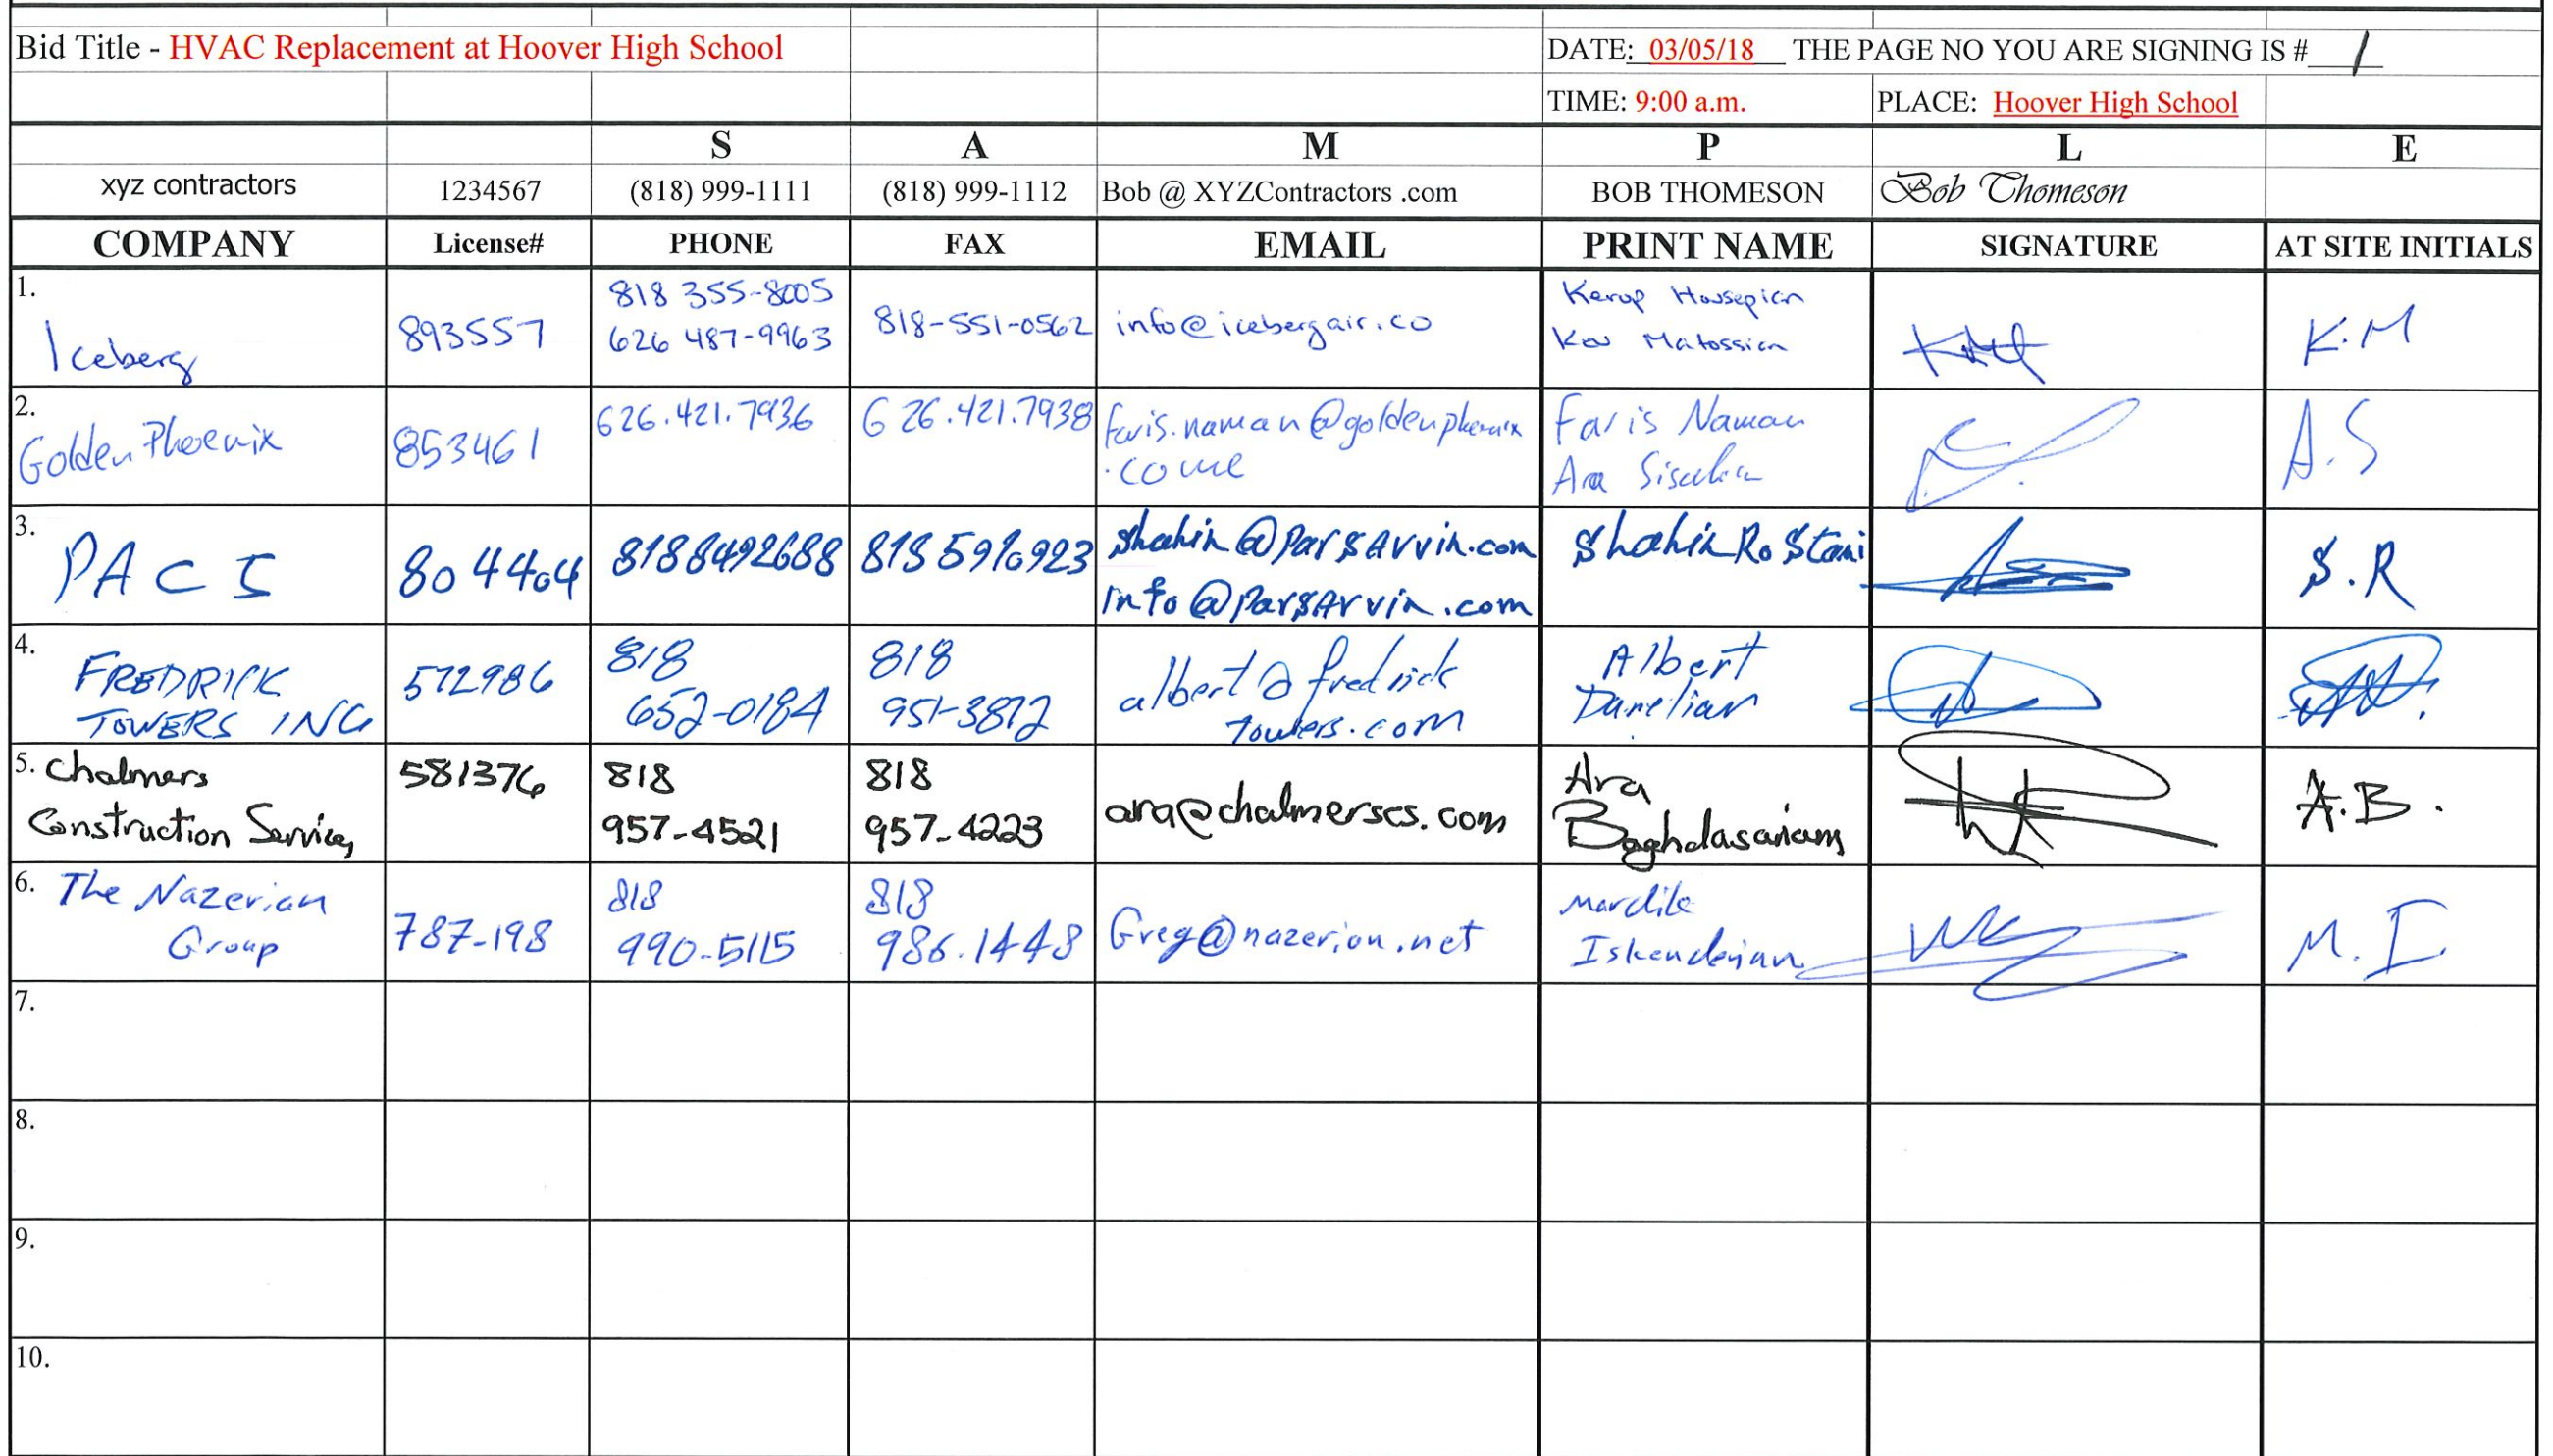 Bid Title - HVAC Replacement at Hoover High School
DATE: 03/05/18 THE PAGE NO YOU ARE SIGNING IS # 1
TIME: 9:00 a.m. PLACE: Hoover High School
S A M P L E
xyz contractors 1234567 (818) 999-1111 (818) 999-1112 Bob @ XYZContractors .com BOB THOMESON Bob Thomeson
COMPANY License# PHONE FAX EMAIL PRINT NAME SIGNATURE AT SITE INITIALS
1.
Iceberg
893557
818 355-8005
626 487-9963
818-551-0562
info@icebergair.co
Kerop Housepian
Matossian
K.M
2.
Golden Phoenix
853461
626.421.7936
626.421.7938
faris.naman@goldenphoenix
.come
Faris Naman
Ara
A.S
3.
PACI
804404
8188492688
8185910923
shahin@ParsArvin.com
info@ParsArvin.com
Shahin Rostami
S.R
4.
FREDRICK
TOWERS INC
572986
818
652-0184
818
951-3872
albert@fredrick
towers.com
Albert
Danelian
5. Chalmers
Construction Services
581376
818
957-4521
818
957-4223
ara@chalmerscs.com
Ara
Baghdasarians
A.B.
6. The Nazerian
Group
787-198
818
990-5115
818
986.1448
Greg@nazerian.net
Mardik
Iskenderian
M.I
7.
8.
9.
10.